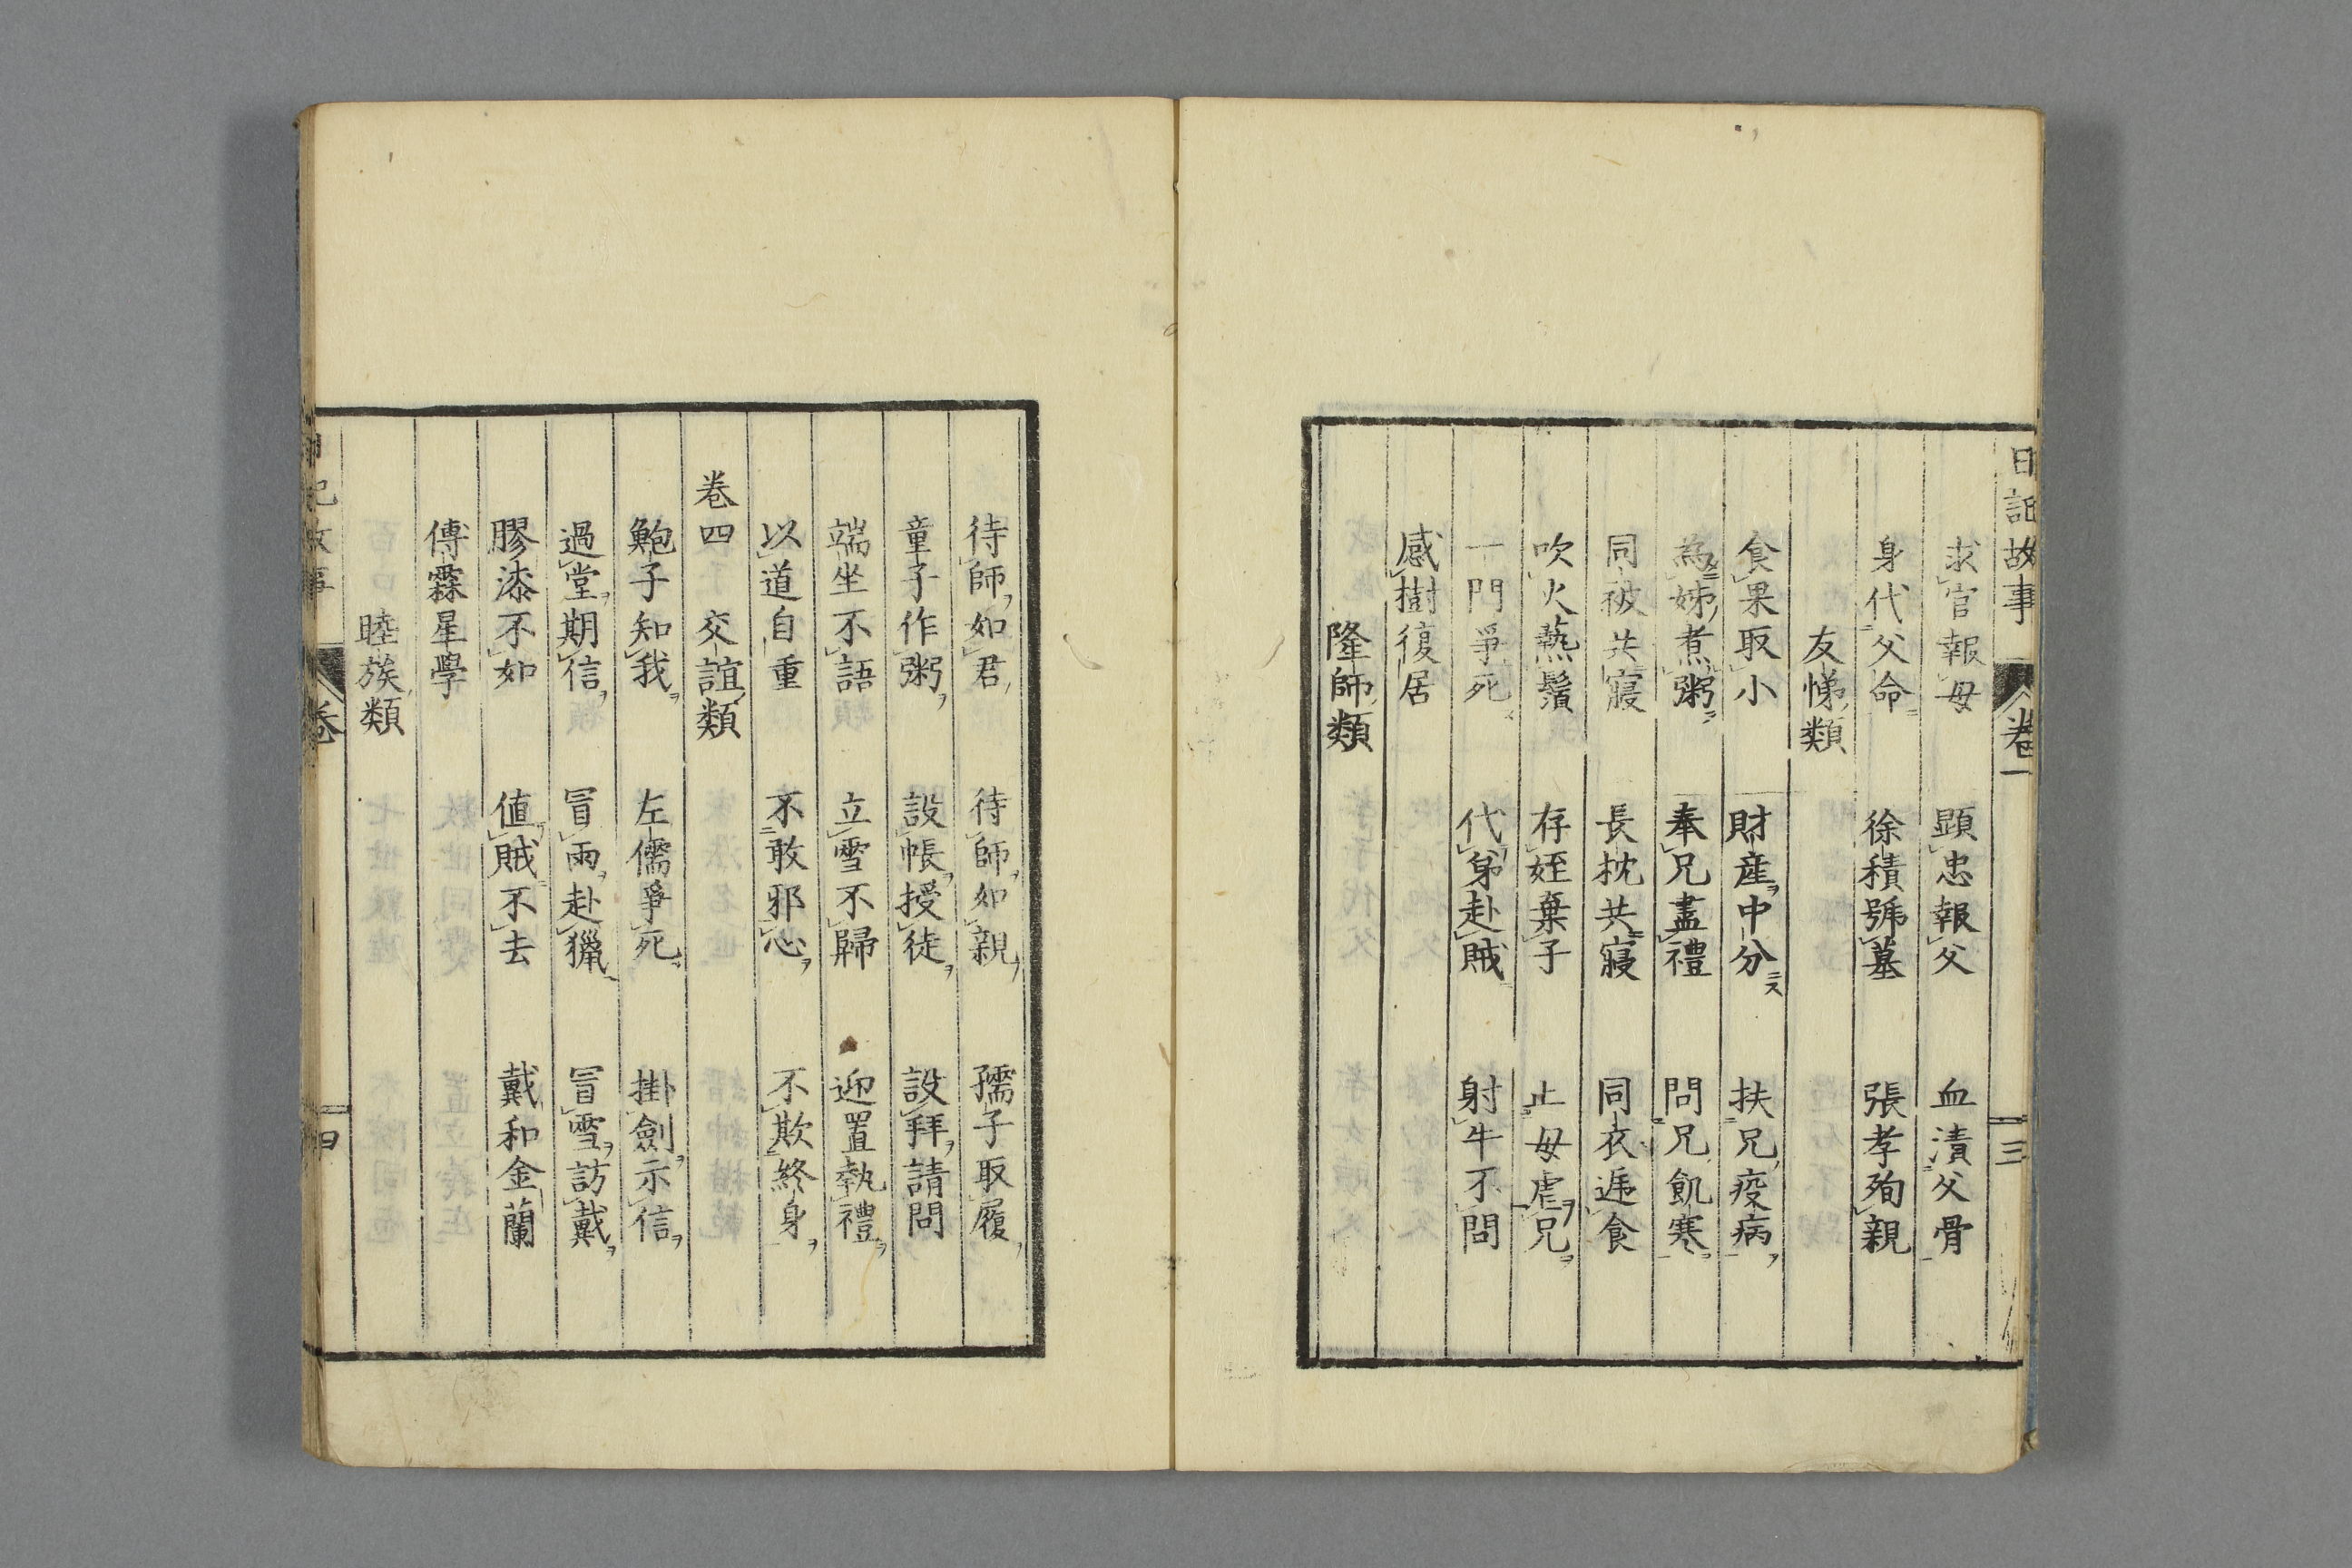 日記故事 卷一 三
求官報母 顕忠報父 血漬父骨
身代父命 徐積號墓 張孝殉親
友悌類
食果取小 財産中分 扶兄疫病
為姊煮粥 奉兄盡禮 問兄飢寒
同被共寢 長枕共寢 同衣逓食
吹火爇鬚 存姪棄子 止母虐兄
一門爭死 代弟赴賊 射牛不問
感樹復居
隆師類
待師如君 待師如親 孺子取履
童子作粥 設帳授徒 設拜請問
端坐不語 立雪不歸 迎置執禮
以道自重 不敢邪心 不欺終身
卷四 交誼類
鮑子知我 左儒爭死 掛劍示信
過堂期信 冒雨赴獵 冒雪訪戴
膠漆不如 値賊不去 戴和金蘭
傅霖星學
睦族類
日記故事 卷 四